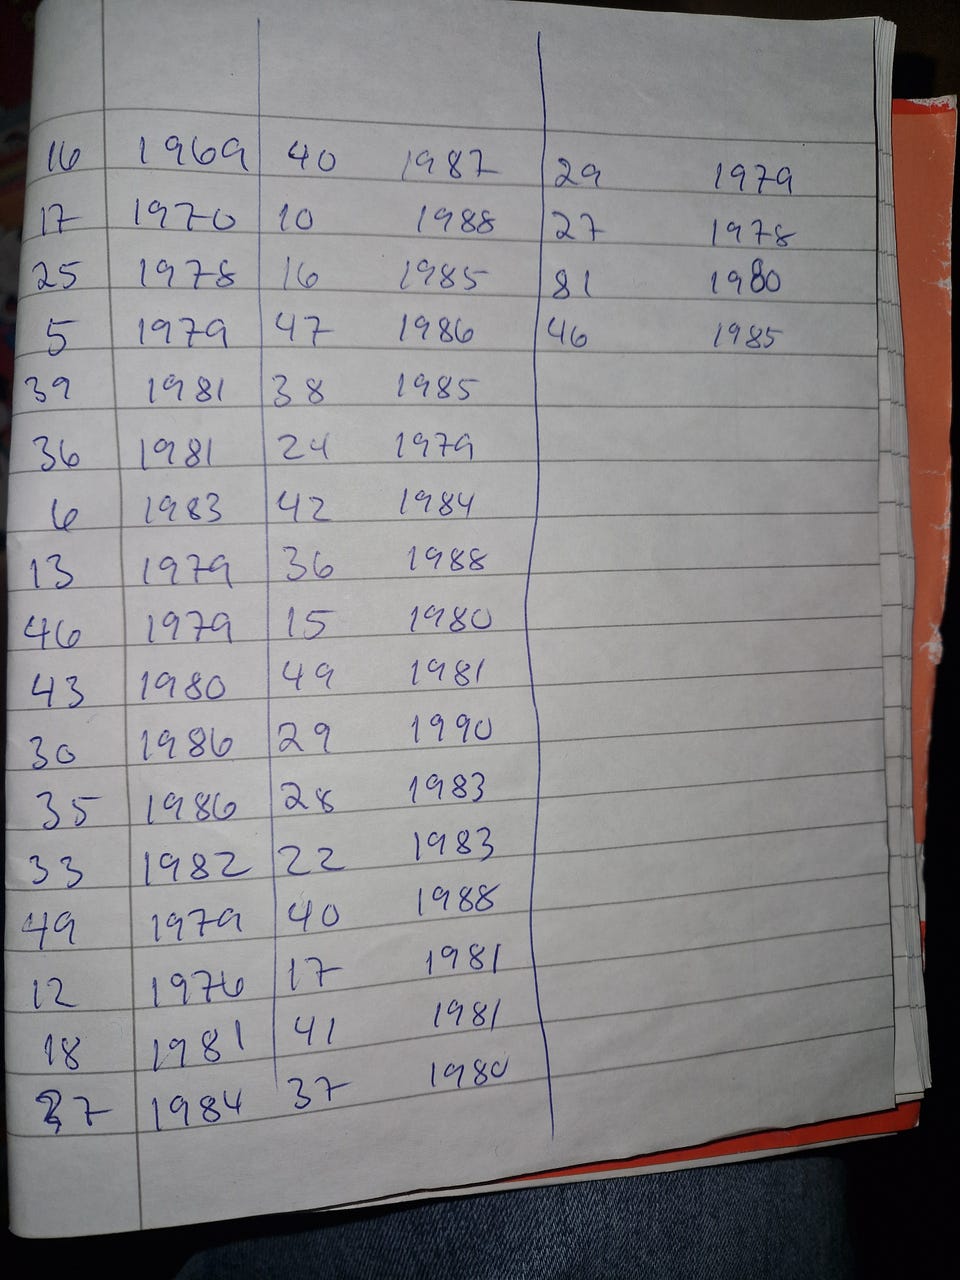 16 1969 40 1987 29 1979
17 1970 10 1988 27 1978
25 1978 16 1985 81 1980
5 1979 47 1986 46 1985
39 1981 38 1985
36 1981 24 1979
6 1983 42 1984
13 1979 36 1988
46 1979 15 1980
43 1980 49 1981
30 1986 29 1990
35 1986 28 1983
33 1982 22 1983
49 1979 40 1988
12 1976 17 1981
18 1981 41 1981
1984 37 1980